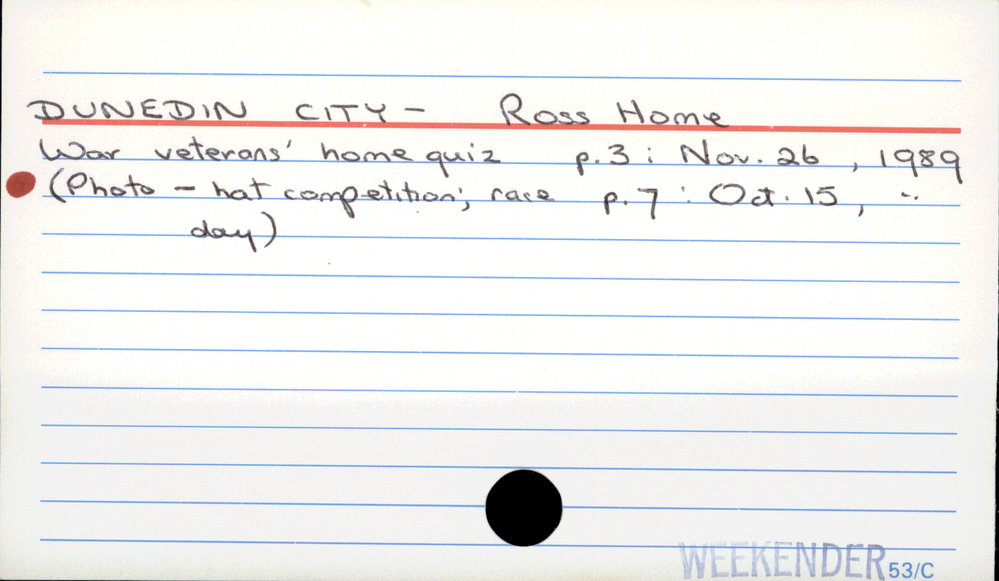 DUNEDIN CITY - Ross Home
War veterans' home quiz p.3 : Nov. 26, 1989
(Photo - hat competition; race p.7 : Oct. 15, "
day)
WEEKENDER 53/C